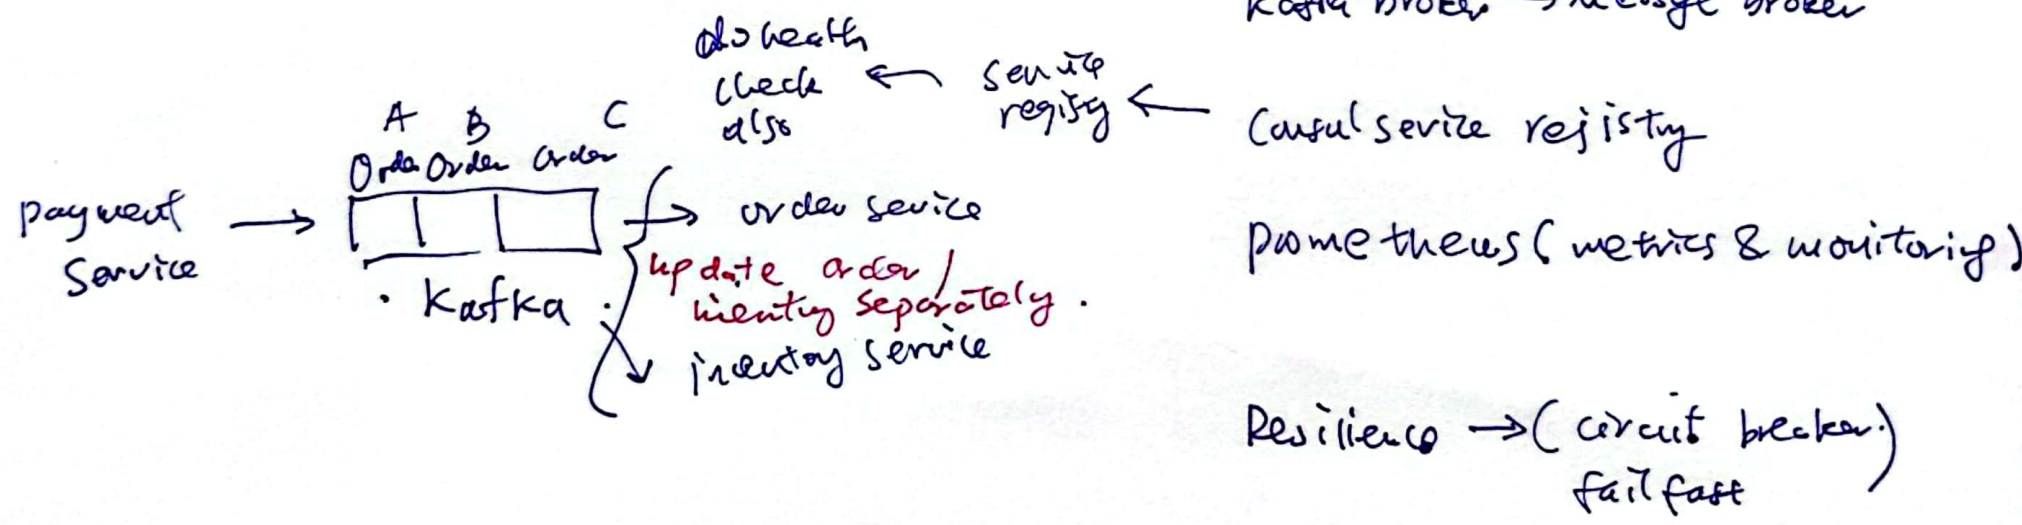 Kafka broker → message broker
do health
check
also
←
service
registry
←
Consul service registry
A B C
Order Order Order
payment
Service
→
→ order service
update order /
inventory separately.
inventory service
. Kafka .
prometheus ( metrics & monitoring )
Resilience → ( circuit breaker. )
fail fast